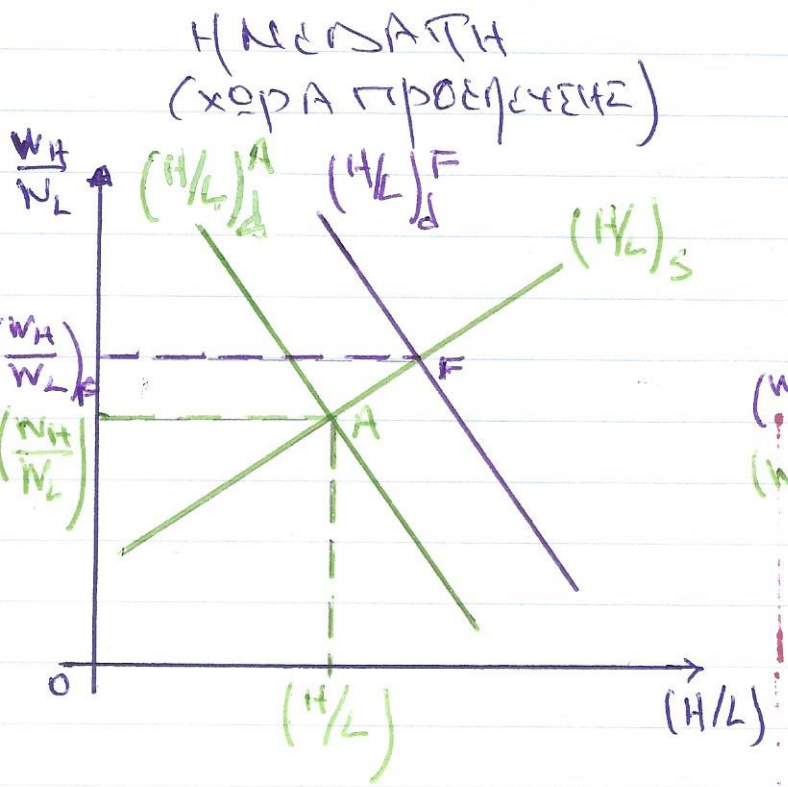 ΗΜΕΔΑΠΗ
(ΧΩΡΑ ΠΡΟΕΛΕΥΣΗΣ)
W_H/W_L
(H/L)_d^A
(H/L)_d^F
(H/L)_S
(W_H/W_L)_F
F
(W_H/W_L)
A
0
(H/L)
(H/L)